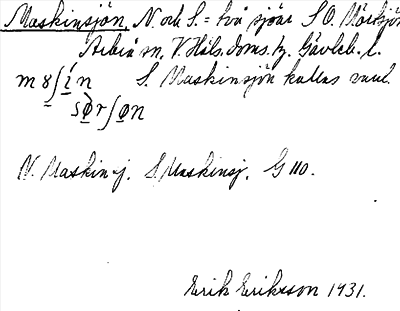 Maskinsjön, N. och S. = två sjöar S.O. Mörtsjön
Arbrå sn. V. Häls. doms. hz. Gävleb. l.
S. Maskinsjön kallas vanl.
N. Maskinsj. S. Maskinsj. G 110.
Erik Eriksson 1931.